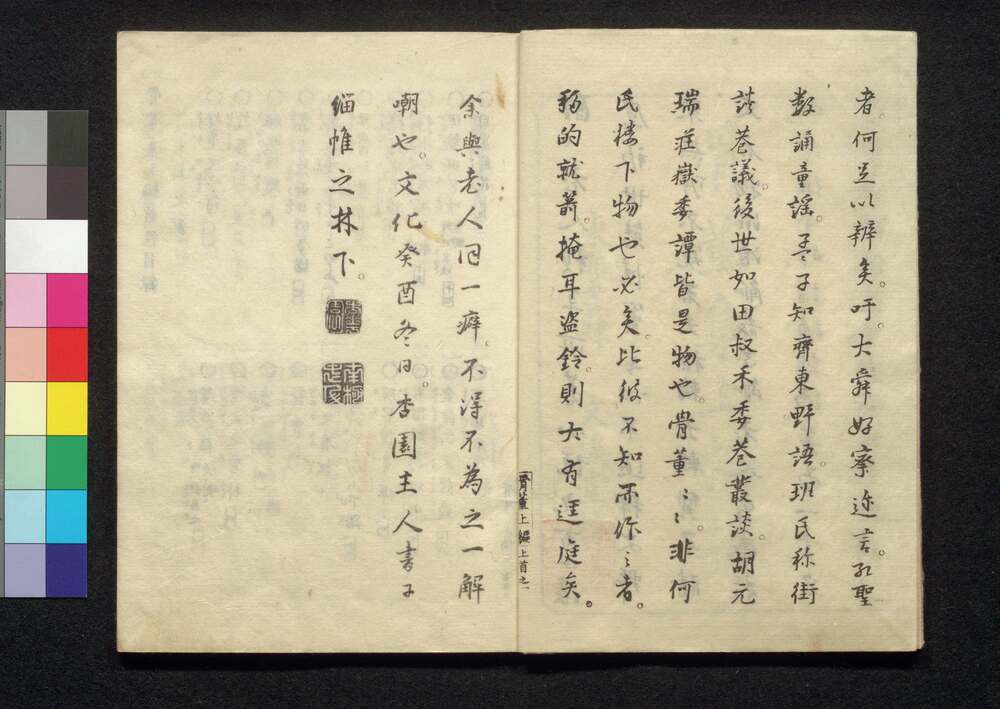 者。何足以辨矣。吁。大舜好察迩言。孔聖
数誦童謡。孟子知齊東野語。班氏称街
談巷議。後世如田叔禾委巷叢談。胡元
瑞荘嶽委譚皆是物也。骨董〻〻。非何
氏楼下物也必矣。比彼不知而作〻者。
的就箭。掩耳盗鈴。則大有逕庭矣。
余與老人同一癖。不得不為之一解
嘲也。文化癸酉冬日。杏園主人書于
緇帷之林下。
骨董上編上首之
南極